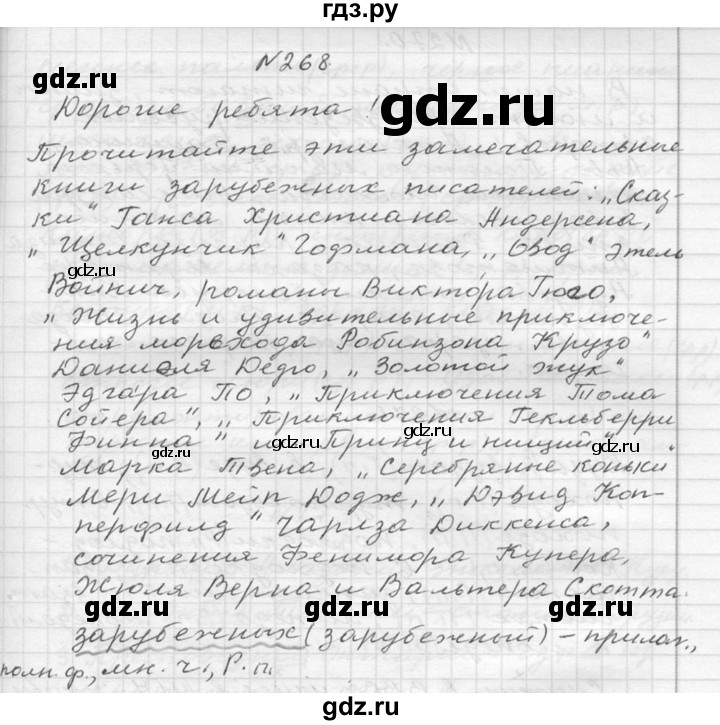 гдз.ру
№268.
Дорогие ребята!
gdz.ru
Прочитайте эти замечательные
книги зарубежных писателей: „Сказ-
ки" Ганса Христиана Андерсена,
„Щелкунчик" Гофмана, „Овод" Этель
gdz.ru
gdz.ru
Войнич, романы Виктора Гюго,
„Жизнь и удивительные приключе-
ния морехода Робинзона Крузо"
Даниеля Дефо, „Золотой жук"
gdz.ru
Эдгара По, „Приключения Тома
Сойера", „Приключения Гекльберри
Финна" и „Принц и нищий"
gdz.ru
gdz.ru
Марка Твена, „Серебряные коньки"
Мери Мейп Додж, „Дэвид Коп-
перфилд" Чарлза Диккенса,
gdz.ru
сочинения Фенимора Купера,
Жюля Верна и Вальтера Скотта.
gdz.ru
gdz.ru
gdz.ru
зарубежных (зарубежный) – прилаг.,
полн. ф., мн. ч., Р. п.
gdz.ru